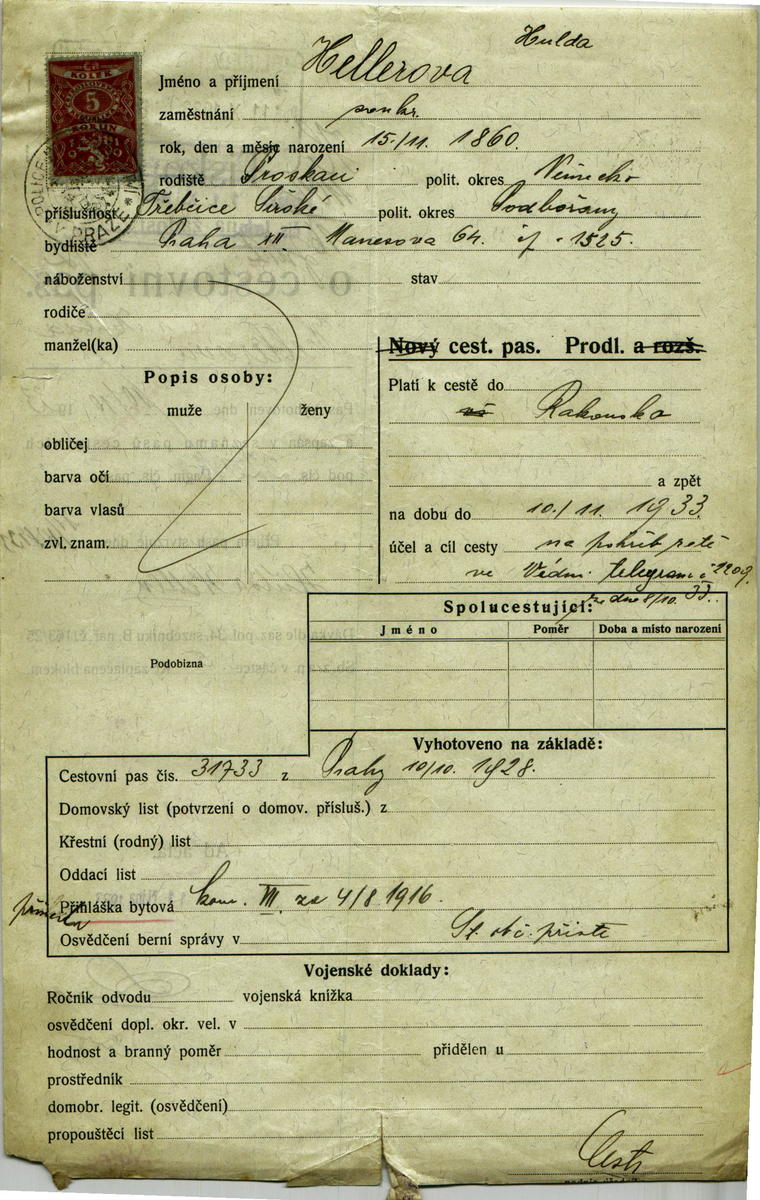 Hulda
Jméno a příjmení Hellerova
KOLEK
5
KORUN
zaměstnání soukr.
rok, den a měsíc narození 15./11. 1860.
rodiště Proskau polit. okres Německo
příslušnost Třebčice Širské polit. okres Podbořany
V PRAZE
bydliště Praha XII. Manesova 64. čj. 1525.
náboženství stav
rodiče
manžel(ka)
Nový cest. pas. Prodl. a rozš.
Popis osoby:
muže ženy
Platí k cestě do
Rakouska
obličej
barva očí
a zpět
barva vlasů
na dobu do 10./11. 1933.
zvl. znam.
účel a cíl cesty na pohřb zetě
ve Vídni telegram č 1209.
ze dne 8/10. 33.
Spolucestující:
Jméno Poměr Doba a místo narození
Podobizna
Vyhotoveno na základě:
Cestovní pas čís. 31733 z Prahy 10/10. 1928.
Domovský list (potvrzení o domov. přísluš.) z
Křestní (rodný) list
Oddací list
Přihláška bytová kom. VII. ze 4/8 1916.
Osvědčení berní správy v St. obč. přiste
Vojenské doklady:
Ročník odvodu vojenská knížka
osvědčení dopl. okr. vel. v
hodnost a branný poměr přidělen u
prostředník
domobr. legit. (osvědčení)
propouštěcí list